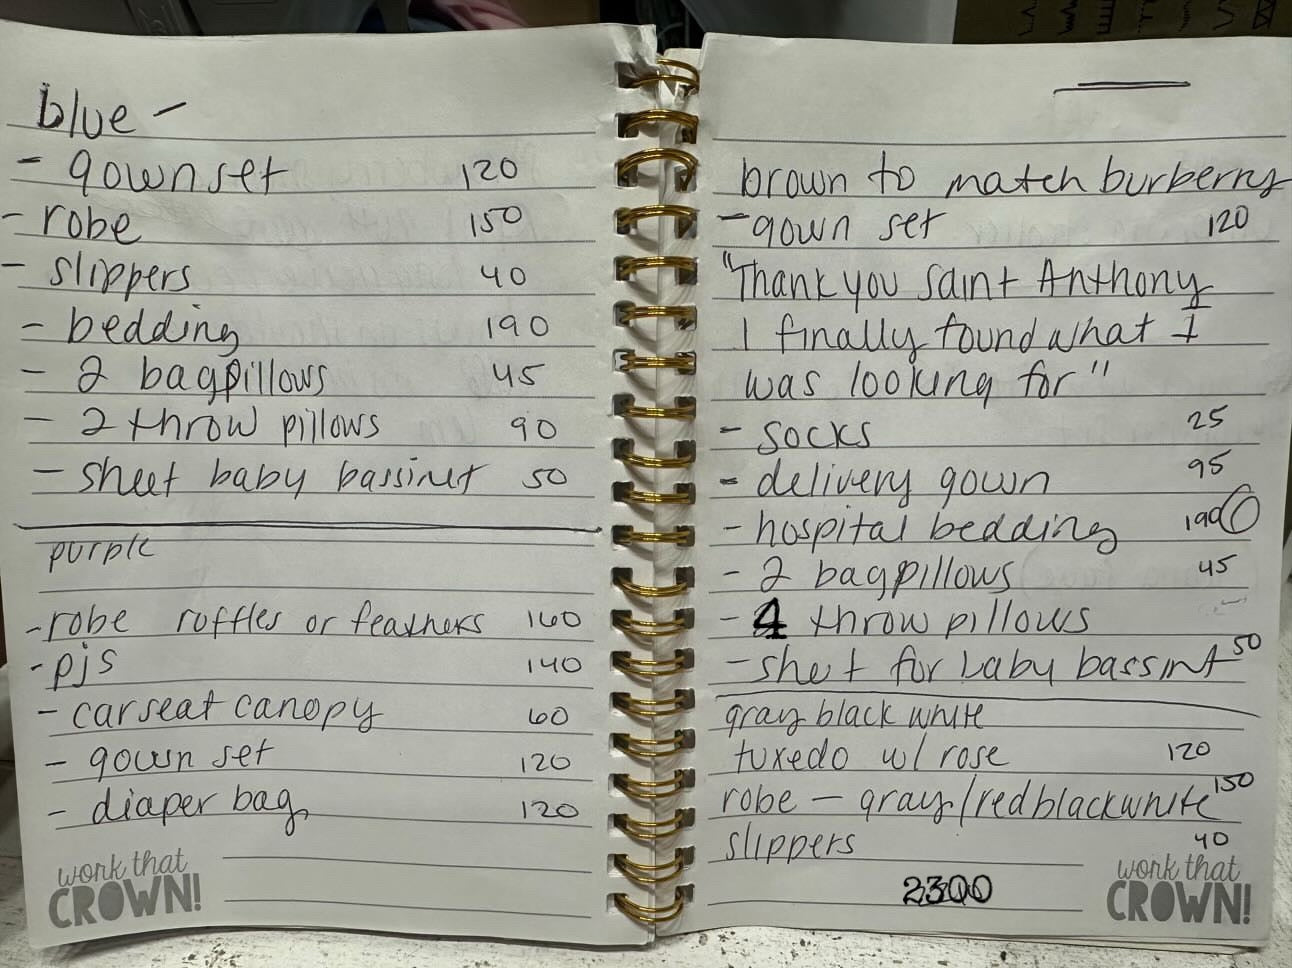 blue -
- gown set 120
- robe 150
- slippers 40
- bedding 190
- 2 bag pillows 45
- 2 throw pillows 90
- sheet baby bassinet 50
purple
- robe ruffles or feathers 160
- pjs 140
- carseat canopy 60
- gown set 120
- diaper bag 120
work that
CROWN!
brown to match burberry
- gown set 120
"Thank you Saint Anthony
I finally found what I
was looking for"
- socks 25
- delivery gown 95
- hospital bedding 190
- 2 bag pillows 45
- 4 throw pillows
- sheet for baby bassint 50
gray black white
tuxedo w/ rose 120
robe - gray/red black white 150
slippers 40
2300
work that
CROWN!